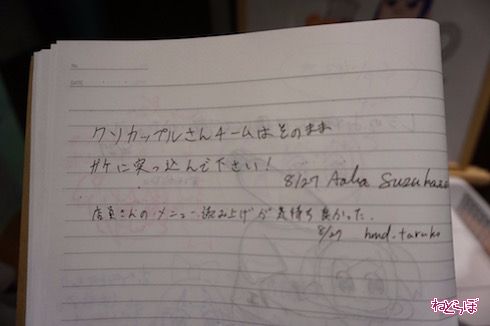 No.
DATE
クソカップルさんチームはそのまま
ガケに突っ込んで下さい!
8/27 Aoba Suzukaze
店員さんのメニュー読み上げが気持ち良かった.
8/27 hmd.taruko
ねとらぼ